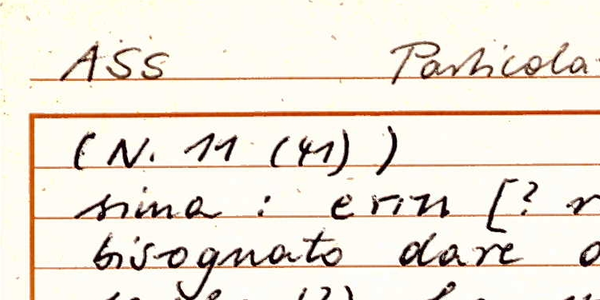 ASS Particola
( N. 11 (41) )
sima : erin [?
bisognato dare